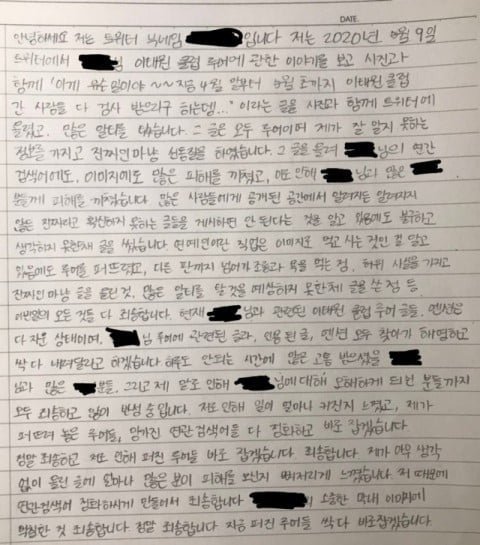 DATE.
안녕하세요 저는 트위터 닉네임 입니다 저는 2020년 5월 9일
트위터에서 님 이태원 클럽 루머에 관한 이야기를 보고 사진과
함께 "이게 무슨 일이야 ~~ 지금 4월 말부터 5월 초까지 이태원 클럽
간 사람들 다 검사 받으라구 하는뎀..." 이라는 글을 사진과 함께 트위터에
올렸고, 많은 알티를 탔습니다. 그 글은 모두 루머이며 제가 잘 알지 못하는
정보를 가지고 진짜인마냥 선동질을 하였습니다. 그 글을 올려 님의 연관
검색어에도, 이미지에도 많은 피해를 끼쳤고, 저로 인해 님과 많은
분들께 피해를 끼쳤습니다. 많은 사람들에게 공개된 공간에서 알려지든 알려지지
않든 진짜라고 확신하지 못하는 글들을 게시하면 안 된다는 것을 알고 있음에도 불구하고
생각하지 못한채 글을 썼습니다 연예인이란 직업은 이미지로 먹고 사는 것인 걸 알고
있음에도 루머를 퍼뜨렸고, 다른 판까지 넘어가 조롱과 욕을 먹는 점, 허위 사실을 가지고
진짜인 마냥 글을 올린 것, 많은 알티를 탈 것을 예상하지 못한채 글을 쓴 점 등
이번일의 모든 것들 다 죄송합니다. 현재 님과 관련된 이태원 클럽 루머 글들, 멘션은
다 지운 상태이며, 님 루머에 관련된 글과, 인용 된 글, 멘션 모두 찾아가 해명하고
싹 다 내려달라고 하겠습니다 하루도 안되는 시간에 많은 고통 받으셨을
님과 많은 분들, 그리고 제 말로 인해 님에 대해 오해하게 되신 분들까지
모두 죄송하고 많이 반성 중입니다. 저로 인해 일이 얼마나 커진지 느꼈고, 제가
퍼뜨려 놓은 루머들, 망가진 연관 검색어들 다 정화하고 바로 잡겠습니다.
정말 죄송하고 저로 인해 퍼진 루머들 바로 잡겠습니다. 죄송합니다. 제가 아무 생각
없이 올린 글에 얼마나 많은 분이 피해를 보신지 뼈저리게 느꼈습니다. 저 때문에
연관검색어 정화하시게 만들어서 죄송합니다 의 소중한 막내 이미지에
먹칠한 것 죄송합니다. 정말 죄송합니다 지금 퍼진 루머들 싹 다 바로잡겠습니다.